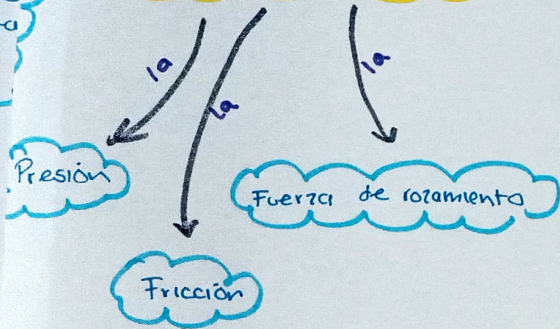 a
la
la
la
Presión
Fuerza de rozamiento
Fricción